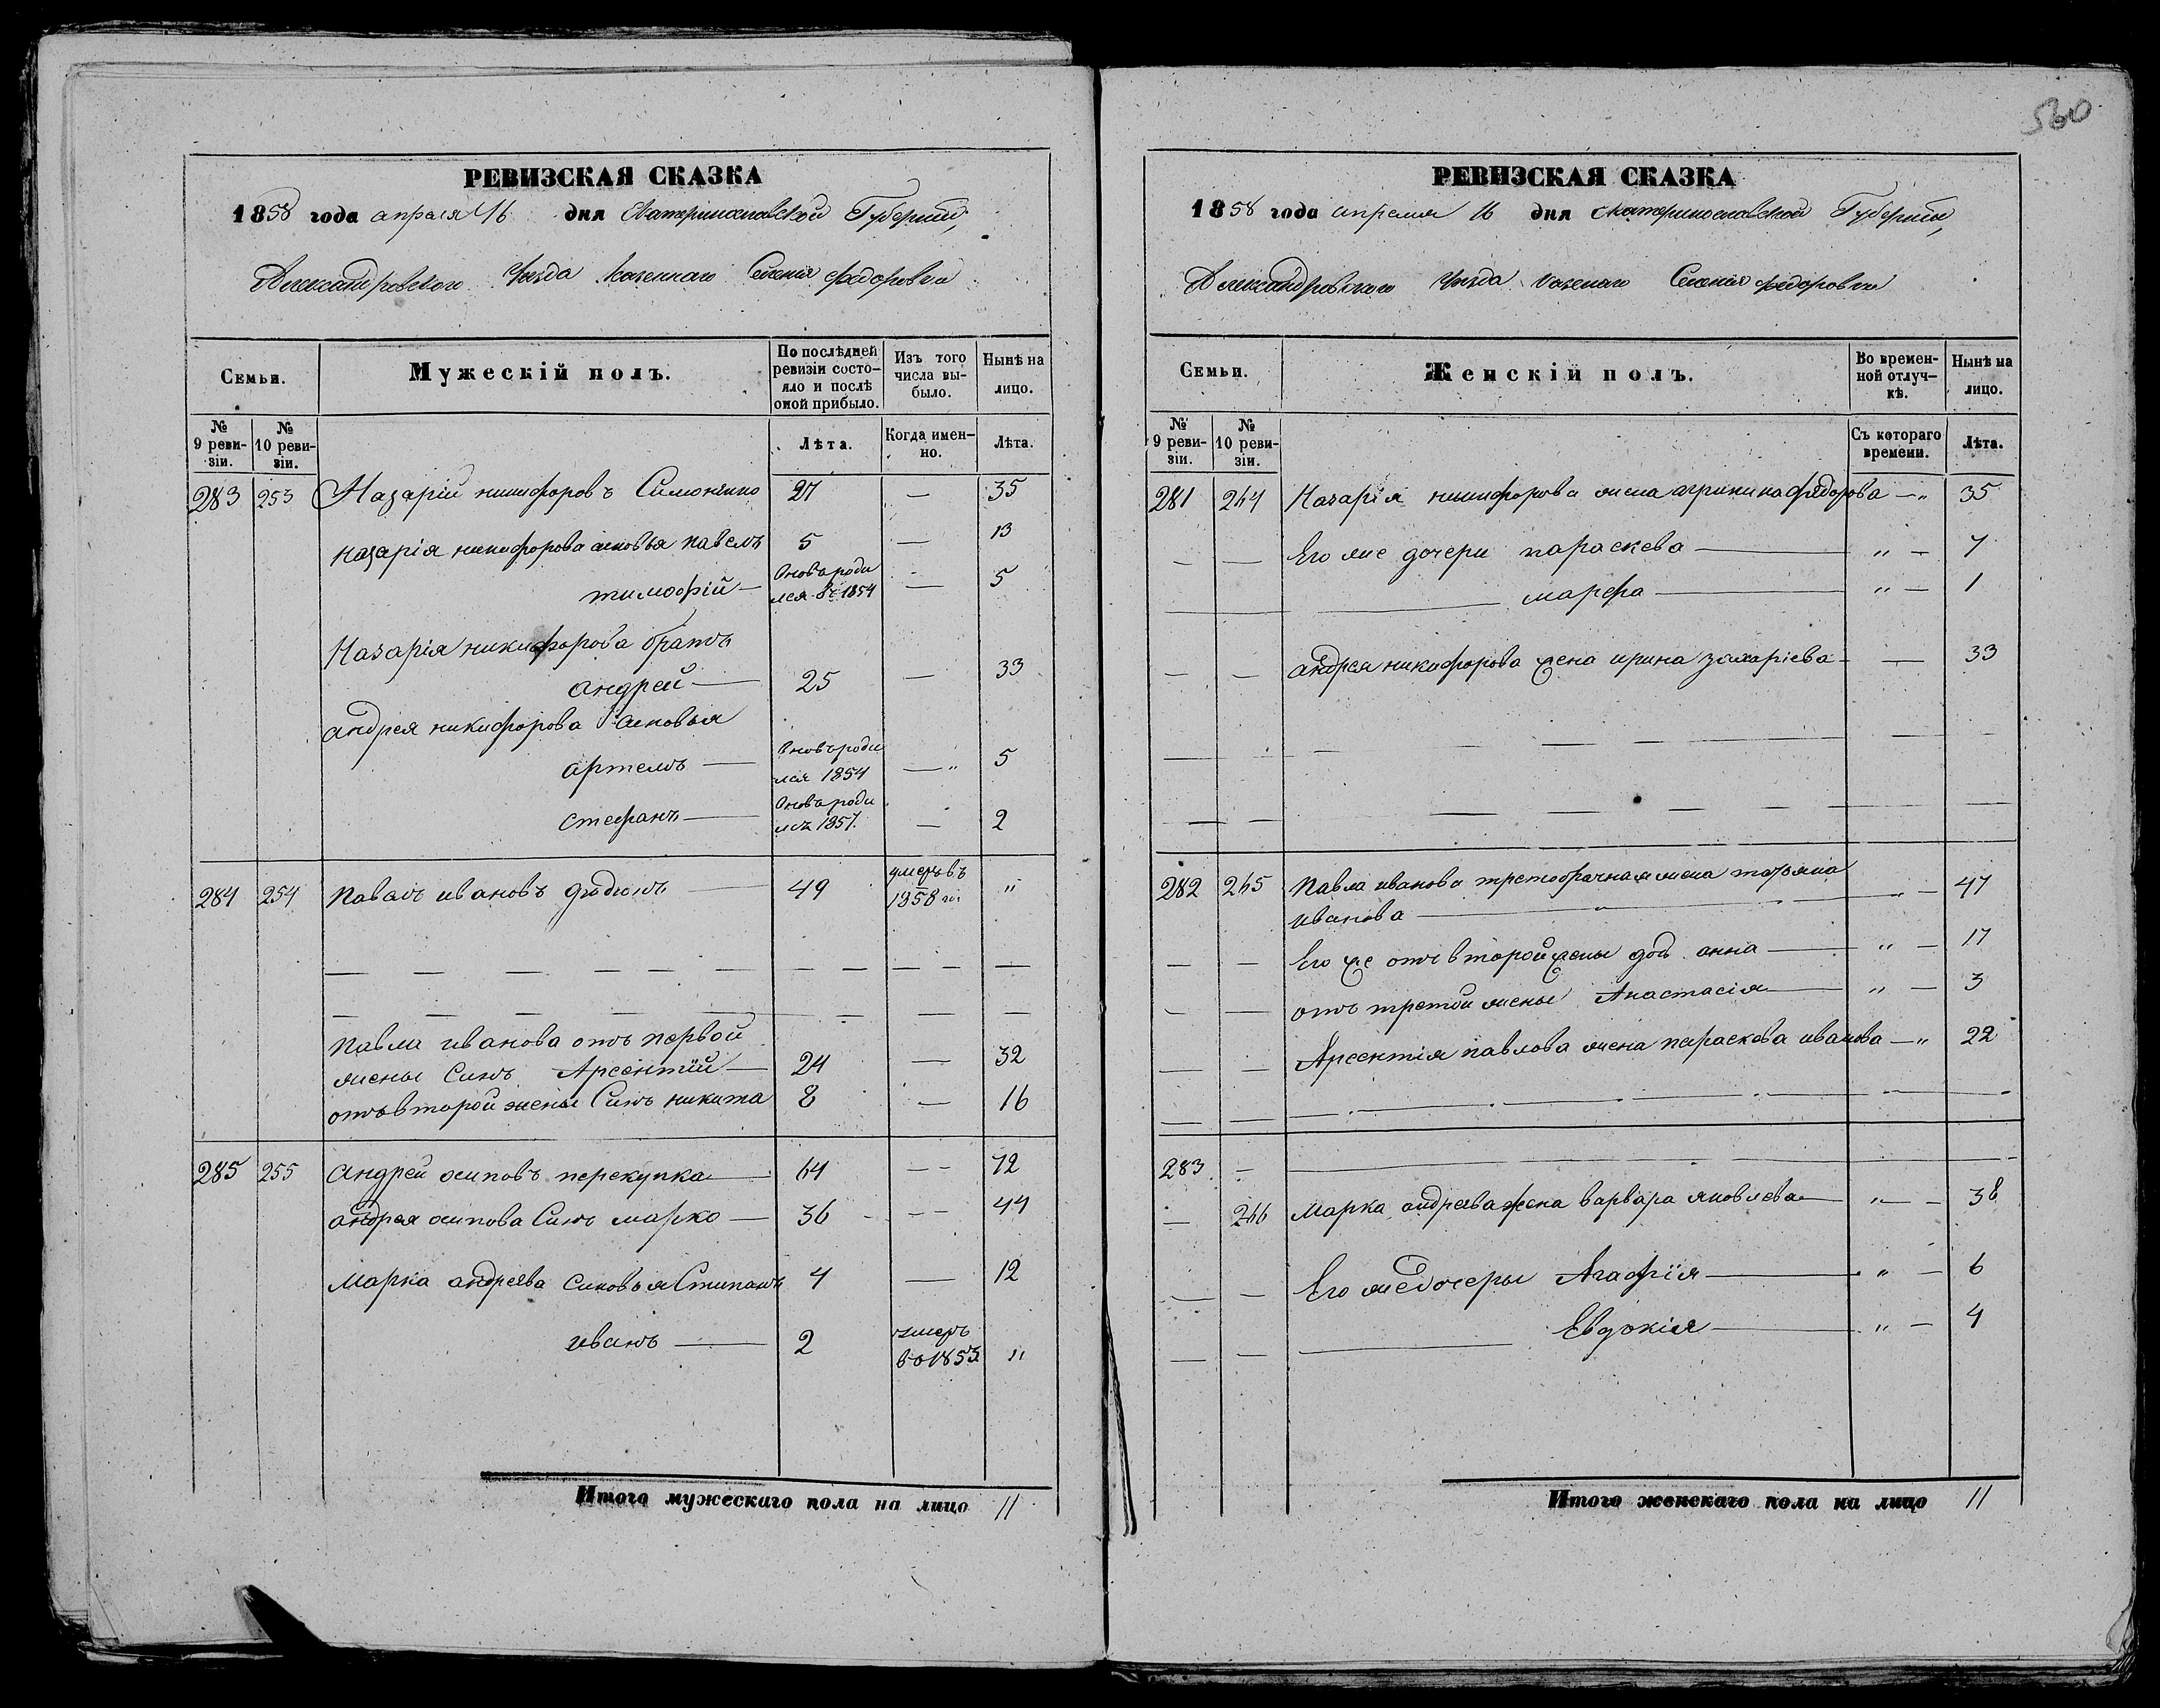 560
РЕВИЗСКАЯ СКАЗКА
1858 года апреля 16 дня Екатеринославской Губернии,
Александровского Уезда Казенного Селения Федоровки
Семьи.
Мужескій полъ.
По послѣдней ревизіи состо-
яло и послѣ оной прибыло.
Изъ того числа вы-
было.
Нынѣ на лицо.
№ 9 реви-
зіи.
№ 10 реви-
зіи.
Лѣта.
Когда имен-
но.
Лѣта.
283 253 Назарій никифоровъ Симоненко 27 — 35
назарія никифорова сыновья павелъ 5 — 13
тимофій — вновь роди
лся в 1854 — 5
Назарія никифорова братъ
андрей — 25 — 33
андрея никифорова сыновья
артемъ — вновь роди
лся 1854 — " 5
стефанъ — вновь роди
лсъ 1857. — 2
284 254 павалъ ивановъ — 49 умеръ въ
1858 "
павла иванова отъ первой
жены Синъ Арсентій — 24 — 32
отъ второй жены Синъ никита 8 — 16
285 255 андрей осиповъ перекупка — 64 — — 72
андрея осипова Синъ марко — 36 — — 44
марка андреева синовья Стипанъ 4 — 12
иванъ — 2 умеръ
в 1853 "
Итого мужескаго пола на лицо 11
РЕВИЗСКАЯ СКАЗКА
1858 года апреля 16 дня екатеринославской Губернии,
Александровского Уезда казеного Селения федоровки
Семьи.
Женскій полъ.
Во времен-
ной отлуч-
кѣ.
Нынѣ на лицо.
№ 9 реви-
зіи.
№ 10 реви-
зіи.
Съ котораго времени.
Лѣта.
281 264 Назарія никифорова жена агрипина федорова — " 35
— — Его же дочери параскева — " — 7
марфа — " — 1
— — андрея никифорова жена ирина захаріева — — 33
282 265 Павла иванова третобрачная жена татьяна
иванова — " — 47
— — Его же отъ второй жены доч. анна — " — 17
— — отъ третой жены Анастасія — " — 3
— — Арсентія павлова жена параскева иванова — " 22
283 —
— 266 Марка андреева жена варвара яковлева — " — 38
— — Его же дочеры Агафія — " — 6
— — Евдокія — " — 4
Итого женскаго пола на лицо 11